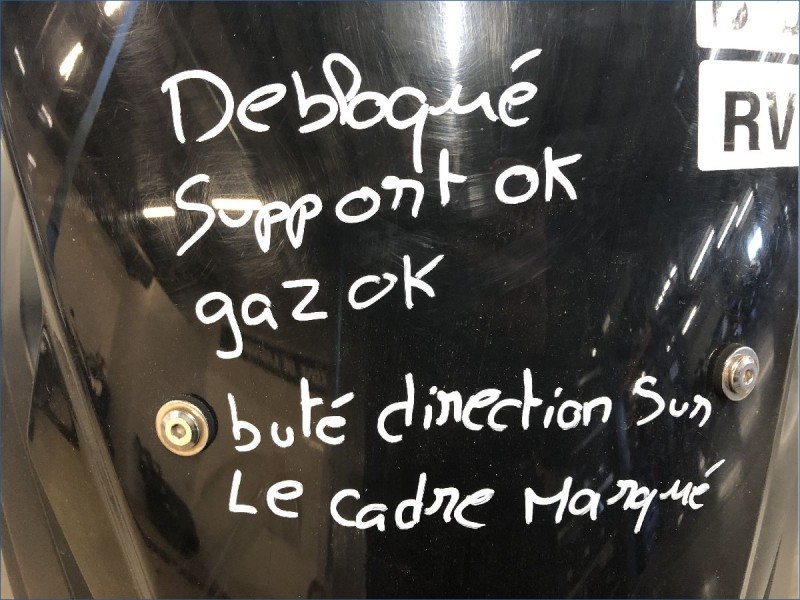 RV
Debloqué
Support ok
gaz ok
buté direction sur
Le cadre Marqué